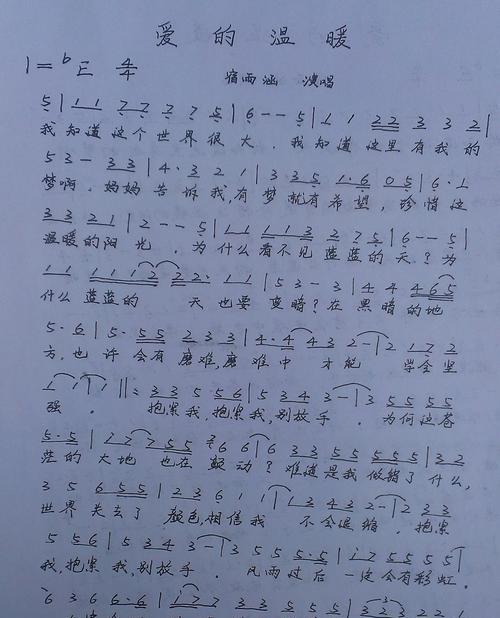 爱的温暖
1=ᵇE 4/4
宿雨涵 演唱
5 | 1 1 7 7 7 7 5 | 6 - - 5 | 1 1 2 2 3 3 2 |
我知道这个世界很大。我知道这里有我的
5 3 - 3 3 | 4· 3 2 1 | 3 3 5 1·6 0 5 | 6·1
梦啊。妈妈告诉我,有梦就有希望,珍惜这
3 3 2 1 | 2 - - 5 | 1 1 1 3 2 7 5 | 6 - - 5 |
温暖的阳光。为什么看不见蓝蓝的天?为
1 1 1 1 1 2 2 2· 1 1 | 5 3 - 3 | 4 4 4 6 5
什么蓝蓝的 天也要变暗?在黑暗的地
5·6 | 5· 5 5 2 3 3 | 4·4 4 3 2 - | 2 1 7 2
方,也许会有磨难,磨难中 才能 学会坚
1 1 | 1 ‖: 3 3 5 5 6 | 5 3 4 3 - | 3 5 5 5 5
强。 抱紧我,抱紧我,别放手。为何这苍
5·5 | 1 7 7 5 5 6 6 | 6 3 3 5 5 5 5 5 | 3 2
茫的大地 也在颤动?难道是我做错了什么,
3 5 6 5 5 | 2 3 6 1 1 | 1 3 4 3 2 - | 2 3 3
世界失去了颜色,相信我 不会退缩,抱紧
5 5 6 | 5 3 4 3 - | 3 5 5 5·5 | 1 7 5 5 5 5
我,抱紧我,别放手。风雨过后一定会有彩虹。
6 3 6 6·6 | 1 7 7 3 3 5 5 5 | 3 2 3 2 2 1